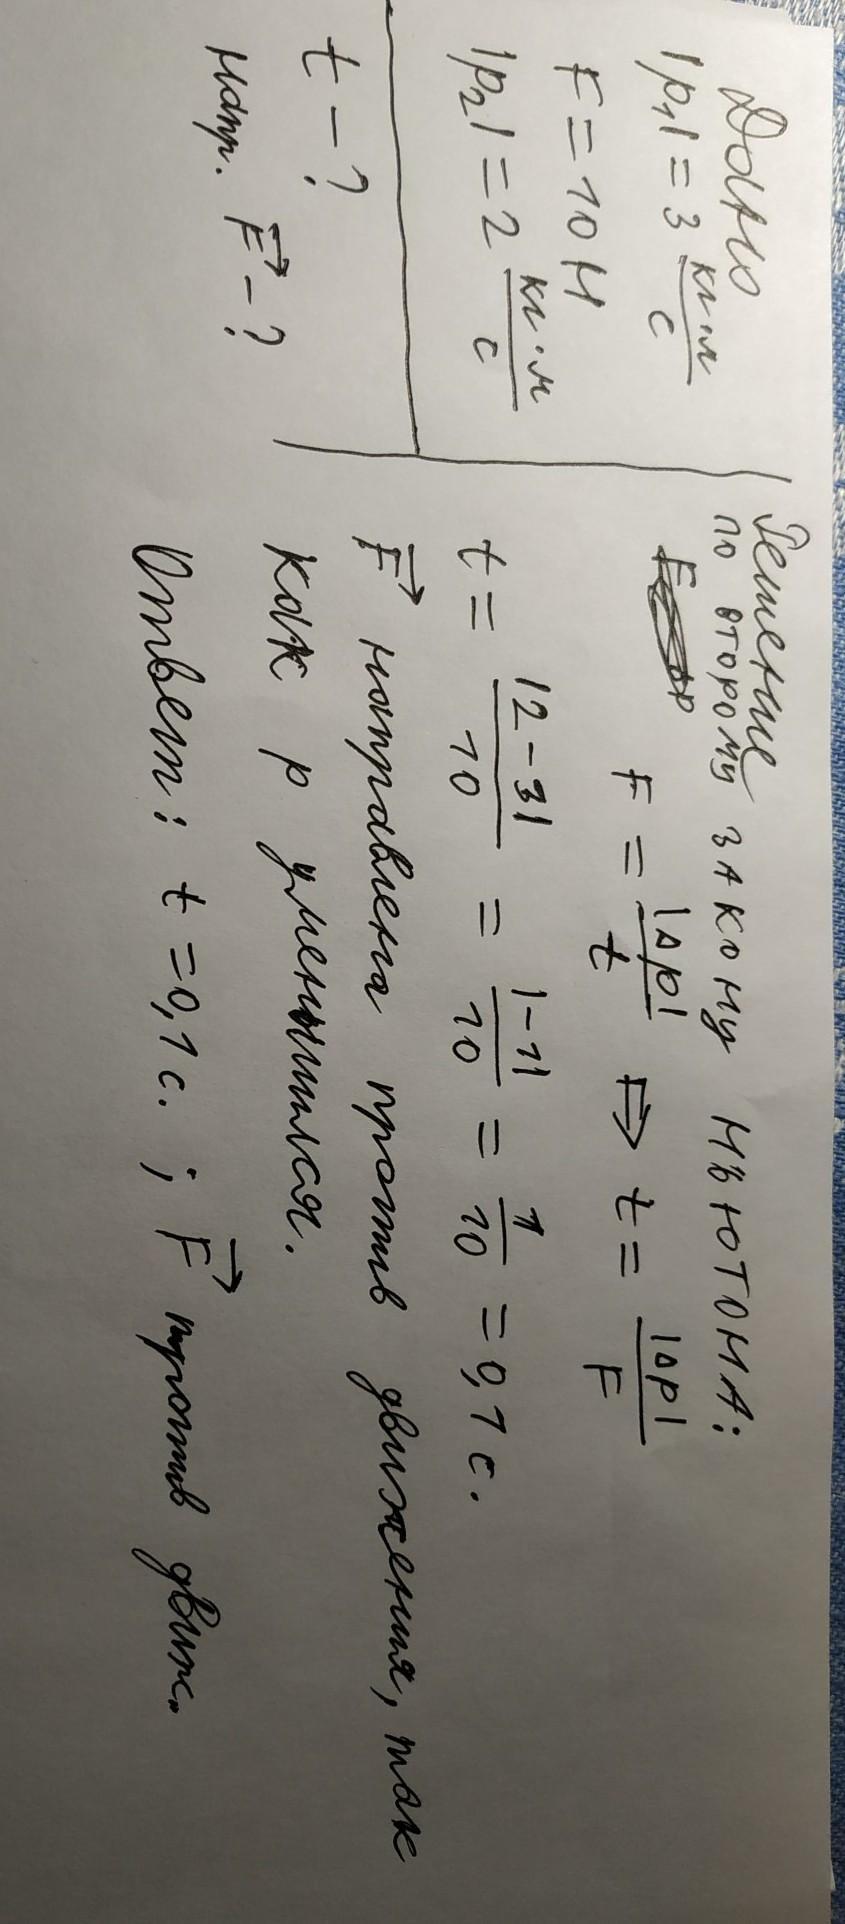 Дано
|p₁| = 3 кг·м/с
F = 10 Н
|p₂| = 2 кг·м/с
t – ?
напр. F⃗ – ?
Решение
по второму закону Ньютона:
F = |Δp|/t ⇒ t = |Δp|/F
t = |2-3|/10 = |-1|/10 = 1/10 = 0,1 с.
F⃗ направлена против движения, так
как p уменьшился.
Ответ: t = 0,1 с. ; F⃗ против движ.